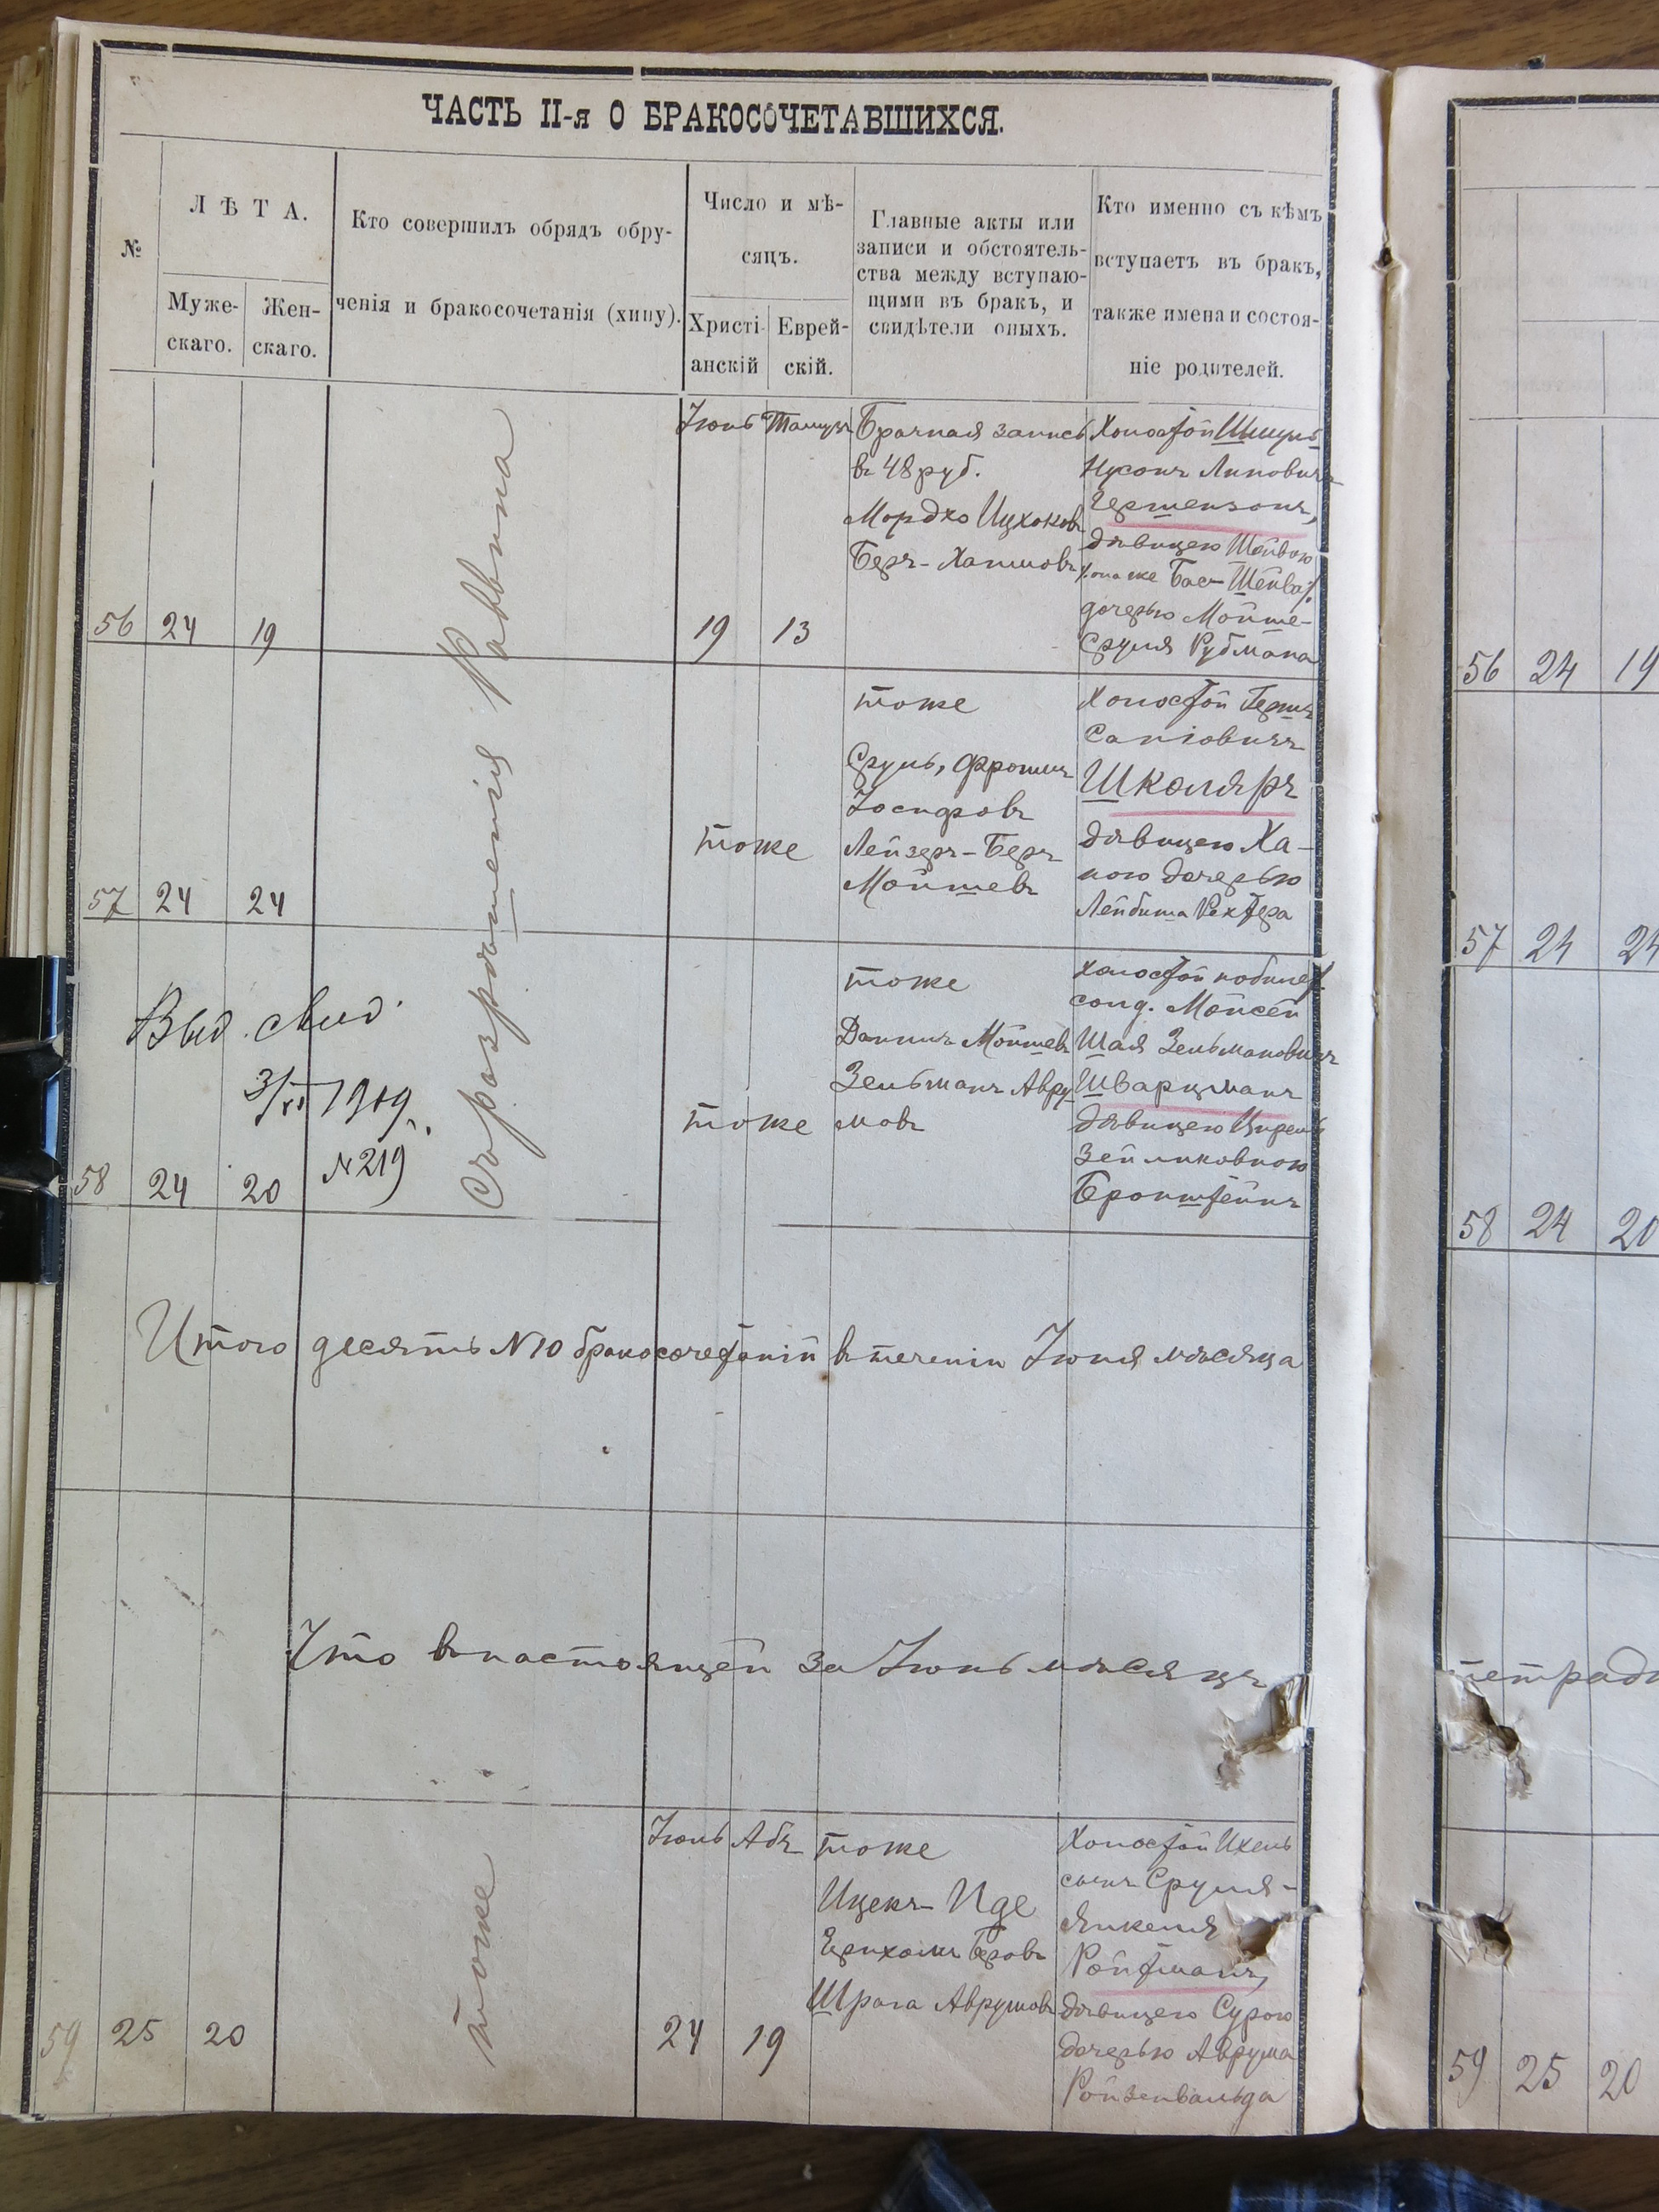 ЧАСТЬ II-я О БРАКОСОЧЕТАВШИХСЯ.
№
ЛѢТА.
Муже-
скаго.
Жен-
скаго.
Кто совершилъ обрядъ обру-
ченія и бракосочетанія (хипу).
Число и мѣ-
сяцъ.
Христі-
анскій
Еврей-
скій.
Главные акты или
записи и обстоятель-
ства между вступаю-
щими въ бракъ, и
свидѣтели оныхъ.
Кто именно съ кѣмъ
вступаетъ въ бракъ,
также имена и состоя-
ніе родителей.
56
24
19
Съ разрѣшенія Раввина
Іюнь
19
Тамузъ
13
Брачная запись
въ 48 руб.
Мордко Ицховъ
Беръ-Хаимовъ
Холостой Шмуль
Нусонъ Липовичъ
Гершензонъ,
дѣвицею Шейвою
/она же Бас-Шейва/
дочерью Мойше-
Сруля Рубмана
57
24
24
тоже
тоже
Сруль, Фроимъ
Іосифовъ
Лейзеръ-Беръ
Мойшевъ
Холостой Гершъ
Саніовичъ
Школяръ
дѣвицею Ха-
ною дочерью
Лейбиша Рехтера
58
24
20
Выд. свид.
3/XI 1909.
№ 219
тоже
тоже
Мойшевъ
Зельманъ Авру-
мовъ
холостой
солд. Мойсей
Шая Зельмановичъ
Шварцманъ
дѣвицею
Зейликовною
Бронштейнъ
Итого десять №10 бракосочетаній въ теченіи Іюня мѣсяца
Что въ настоящей за Іюнь мѣсяцъ
59
25
20
тоже
Іюль
24
Абъ
19
тоже
Ицекъ-Иде
Ерихомъ Беровъ
Шрага Аврумовъ
Холостой Ихель
сынъ Сруля-
Янкеля
Ройтманъ,
дѣвицею Сурою
дочерью Аврума
Ройзенвальда
56 24 19
57 24 24
58 24 20
тетради
59 25 20